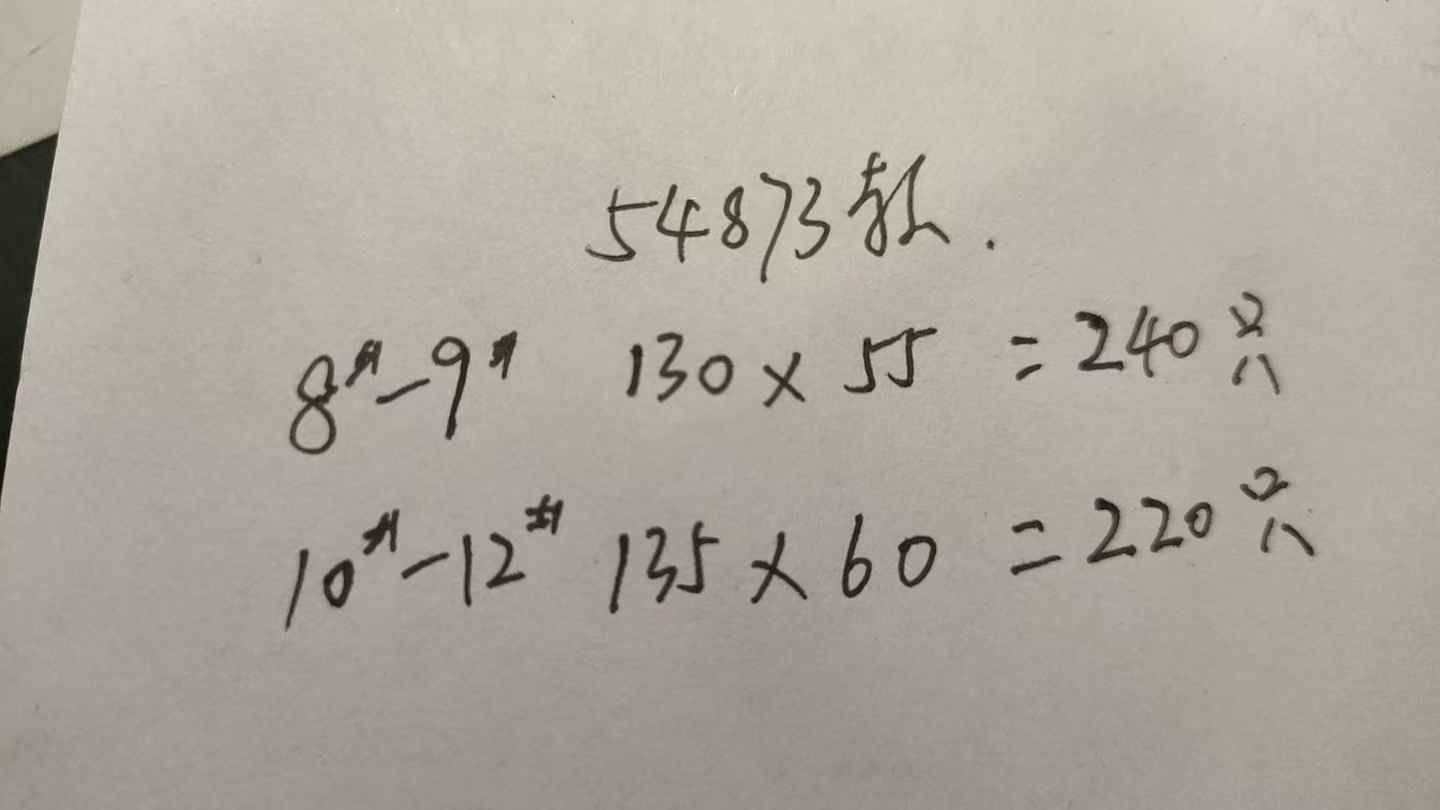 54873款.
8#-9# 130×55 =240只
10#-12# 135×60 =220只